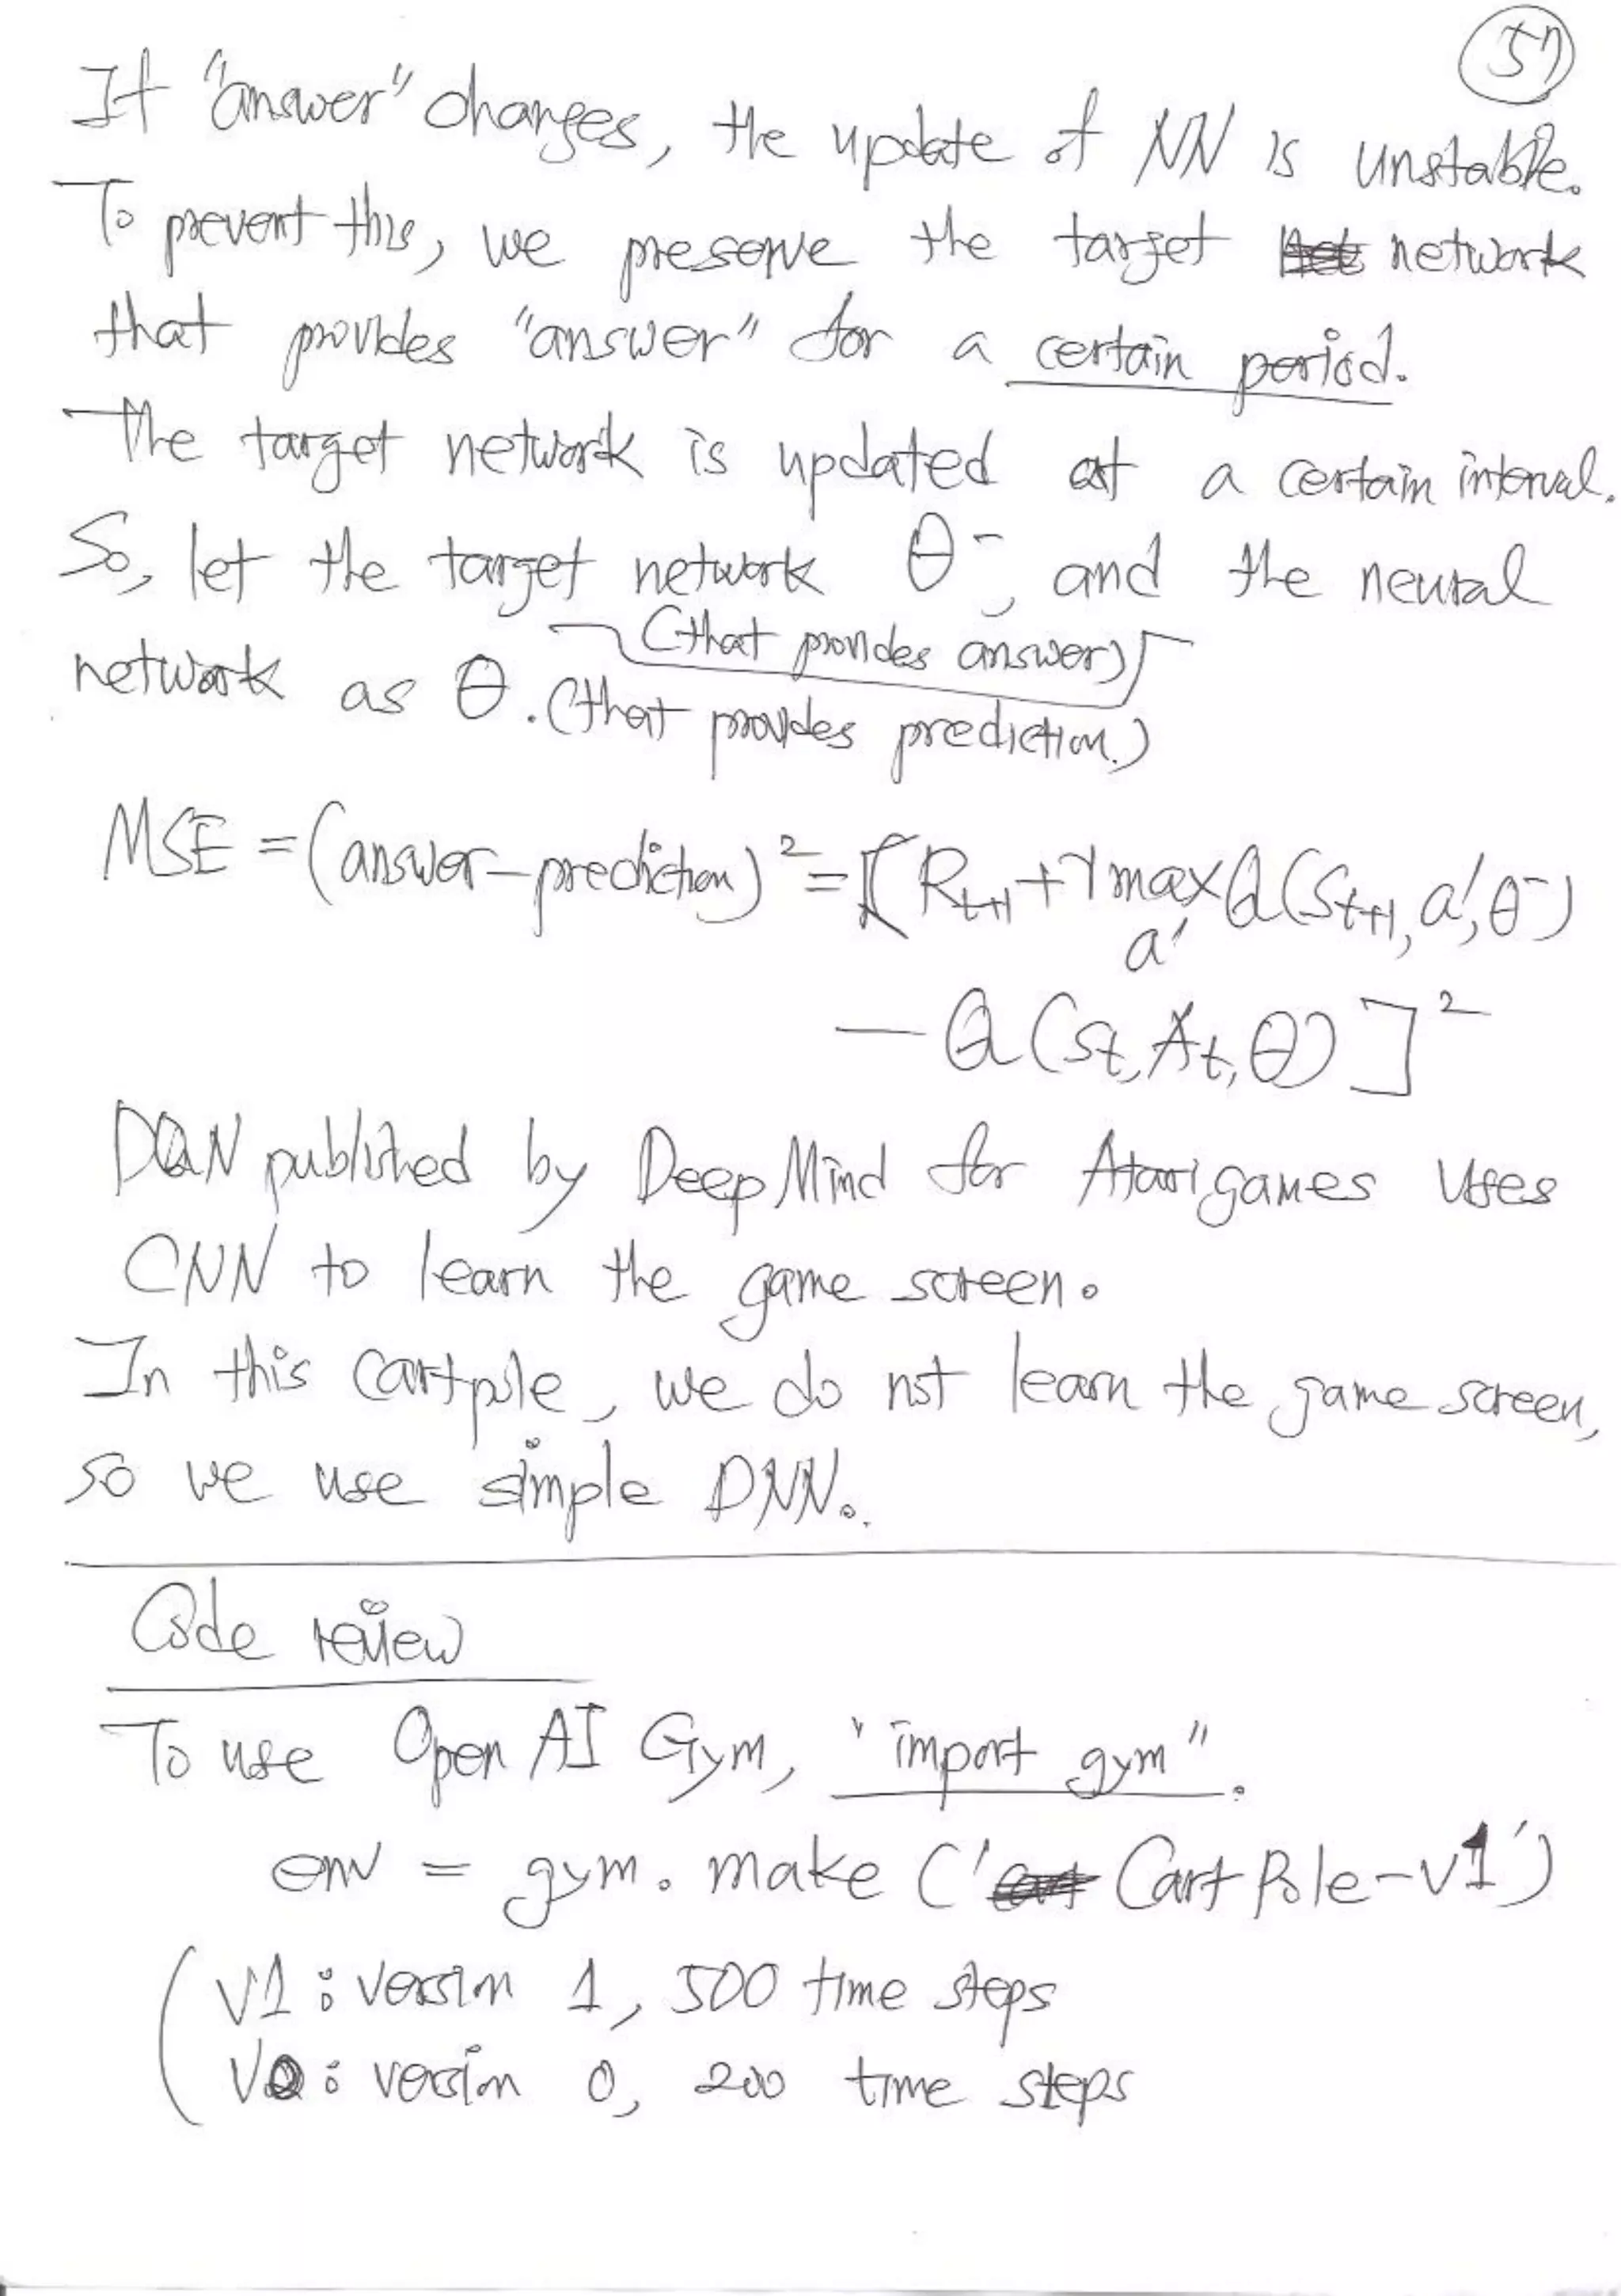 57
If "answer" changes, the update of NN is unstable.
To prevent this, we preserve the target network
that provides "answer" for a certain period.
The target network is updated at a certain interval.
So, let the target network θ⁻, and the neural
(that provides answer)
network as θ. (that provides prediction.)
MSE = (answer-prediction)² = [R_{t+1} + γ max_{a'} Q(S_{t+1}, a', θ⁻)
- Q(S_t, A_t, θ)]²
DQN published by DeepMind for Atari games uses
CNN to learn the game screen.
In this Cartpole, we do not learn the game screen,
so we use simple DNN.
Code review
To use Open AI Gym, "import gym".
env = gym.make('CartPole-v1')
(V1: version 1, 500 time steps
V0: version 0, 200 time steps